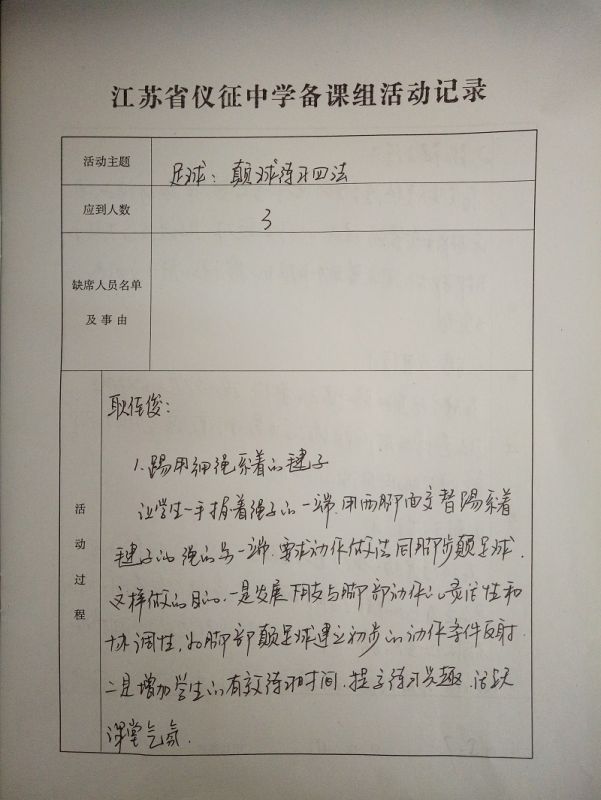 江苏省仪征中学备课组活动记录
活动主题
足球：颠球练习四法
应到人数
3
缺席人员名单
及事由
活动过程
耿佳俊：
1.踢用细绳系着的毽子
让学生一手指着绳子的一端，用两脚交替踢系着
毽子的绳的另一端，要求动作做法同脚步颠足球，
这样做的目的，一是发展下肢与脚部动作的灵活性和
协调性，为脚部颠足球建立初步的动作条件反射，
二是增加学生的有效练习时间，提高练习兴趣，活跃
课堂气氛.